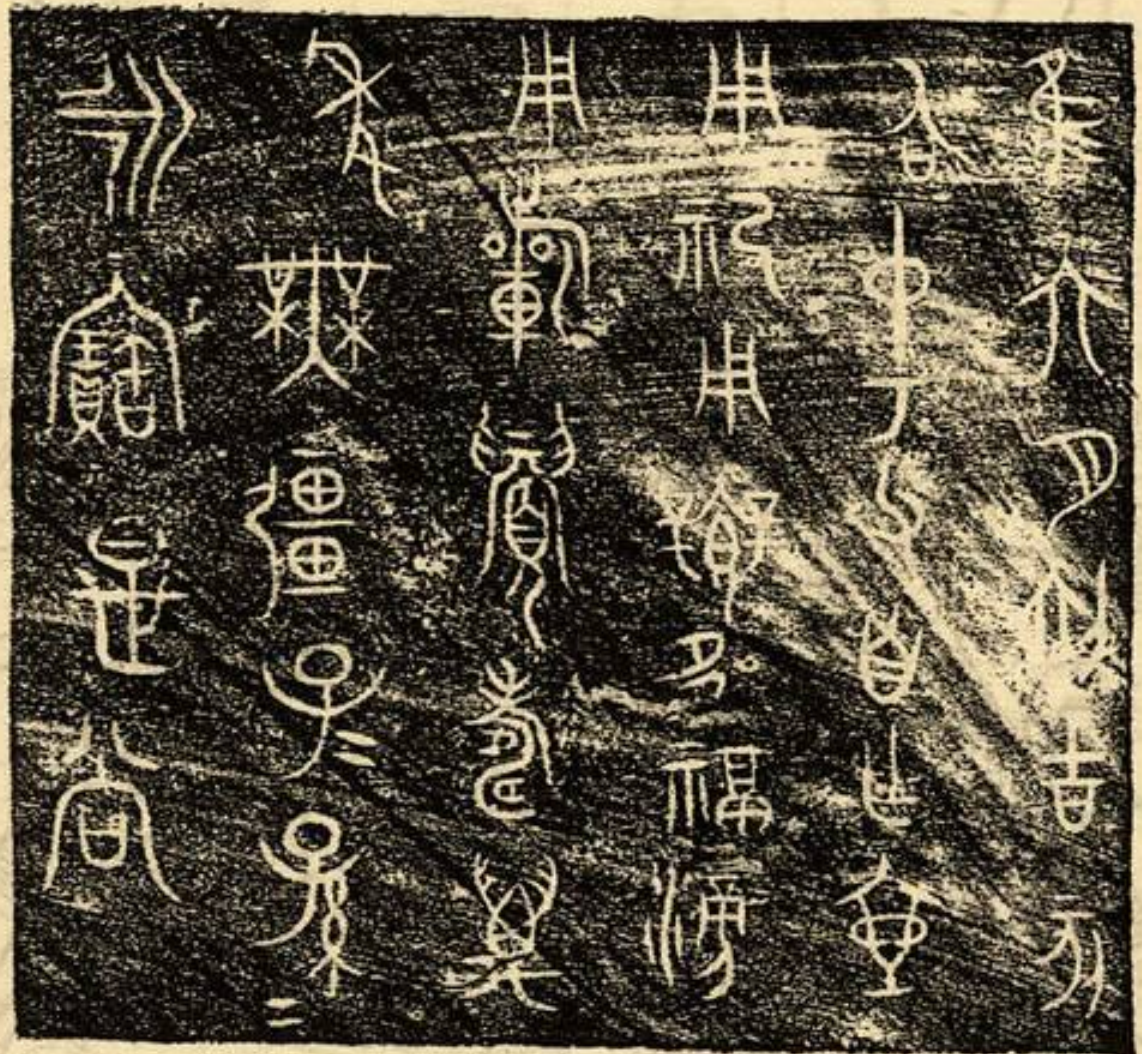 隹六月初吉丁亥
召中丂父自乍壺
用祀用饗多福滂
用蘄眉壽萬
年無疆子=孫=
永寶是尚